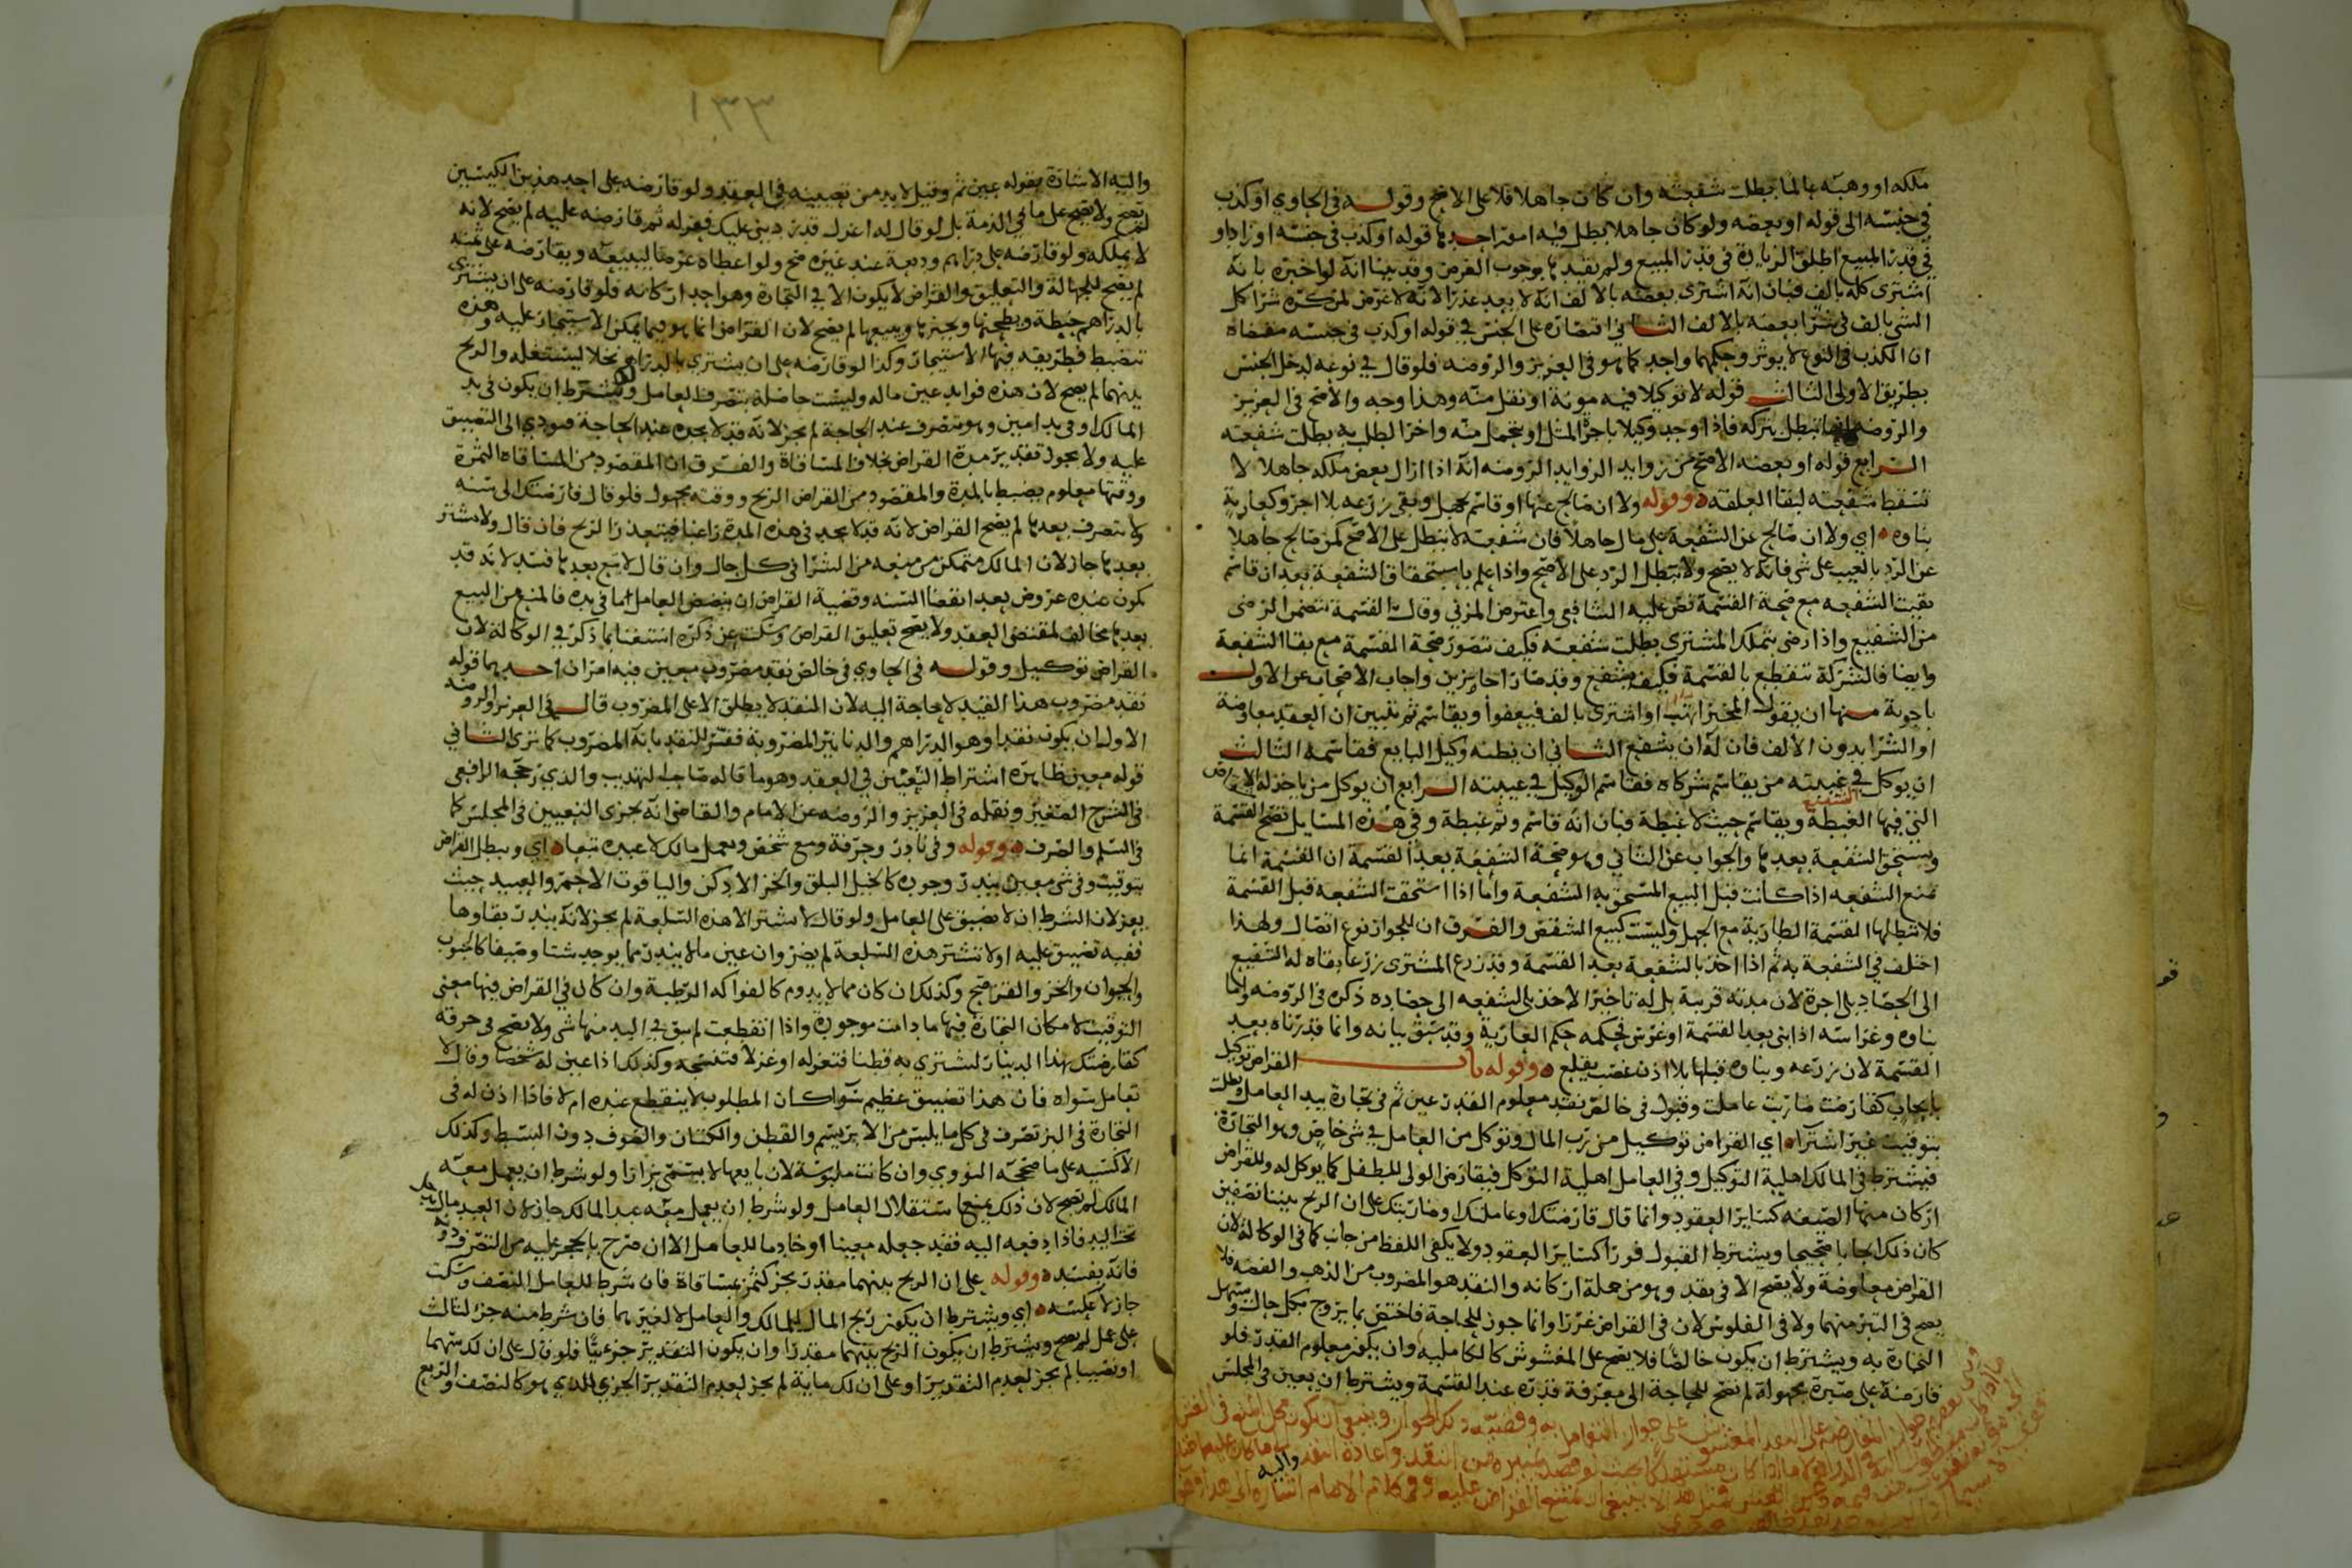 ملكه او وهبه عالما بطلت شفعته وان كان جاهلا فلا على الاصح وقوله في الحاوي او كذب
في جنسه الى قوله او بعضه ولو كان جاهلا بطل فيه امور احدها قوله او كذب في جنسه او زاد او
في قدر المبيع اطلق الزيادة في قدر المبيع ولم يقيد بما يوجب الغرض وقد بينا انه لو اخبره بانه
اشترى كله بالف فبان انه اشترى بعضه بالالف انه لا يعد عذرا لانه لا غرض لمن كره شرا كل
الشي بالف في شرا بعضه بالالف الثاني اقتصاره على الجنس في قوله او كذب في جنسه مقتضاه
ان الكذب في النوع لا يوثر وحكمهما واحد كما هو في العزيز والروضه فلو قال في نوعه لدخل الجنس
بطريق الاولى الثالث قوله لا توكيلا فيه مونة او ثقل منه وهذا وجه والاصح في العزيز
والروضه انها تبطل بتركه فاذا وجد وكيلا باجرة المثل او بتحمل منه واخر الطلب به بطلت شفعته
الرابع قوله او بعضه الاصح من زوايد الزوايد الروضه انه اذا ازال بعض ملكه جاهلا لا
تسقط شفعته لبقا العلقه وقوله ولا ان صالح عنها او قاسم بجهل وبقي زرعه بلا اجر وكعارية
بناوه اي ولا ان صالح عن الشفعة على مال جاهلا فان شفعته لا تبطل على الاصح كمن صالح جاهلا
عن الرد بالعيب على شي فانه لا يصح ولا يبطل الرد على الاصح واذا علم باستحقاق الشفعة بعد ان قاسم
بقيت الشفعه مع صحة القسمة نص عليه الشافعي واعترض المزني وقال القسمة تتضمن الرضى
من الشفيع واذا رضى بتملك المشتري بطلت شفعته فكيف تتصور صحة القسمة مع بقا الشفعة
وايضا فالشركة تنقطع بالقسمة فكيف يشفع وقد صارا جايزين واجاب الاصحاب عن الاول
باجوبة منها ان يقول المخبر اتهب او اشترى بالف فيعفوا ويقاسم ثم تبين ان العقد معاوضة
او الشرا بدون الالف فان له ان يشفع الثاني ان يظنه وكيل البايع فقاسمه الثالث
ان يوكل في غيبته من يقاسم شركاه فقاسم الوكيل في غيبته الرابع ان يوكل من ياخذ له الاعواض
التي فيها الغبطة ويقاسم حيث لا غبطة فبان انه قاسم وثم غبطة وفي هذه المسايل تصح القسمة
ويستحق الشفعة بعدها والجواب عن الثاني وهو صحة الشفعة بعد القسمة ان القسمة انما
تمنع الشفعه اذا كانت قبل البيع المستحق به الشفعة واما اذا استحقت الشفعه قبل القسمة
فلا تبطلها القسمة الطارية مع الجهل وليست كبيع الشقص والفرق ان للجوار نوع اتصال ولهذا
اختلف في الشفعة به ثم اذا اخذ بالشفعة بعد القسمة وقد زرع المشتري زرعا بقاه له الشفيع
الى الحصاد بلا اجرة لان مدته قريبة بل له تاخير الاخذ بالشفعه الى حصاده ذكره في الروضه واما
بناوه وغراسه اذا بنى بعد القسمة او غرس فحكمه حكم العارية وقد سبق بيانه وانما قدرناه بعد
القسمة لان زرعه وبناوه قبلها بلا اذن غصب يقلع وقوله باب القراض توكيل
بايجاب كقارضت ضاربت عاملت وقبول في خالص نقد معلوم القدر عين ثم في تجارة بيد العامل وبطلت
بتوقيت غير اشتراه اي القراض توكيل من رب المال وتوكل من العامل في شي خاص وهو التجارة
فيشترط في المالك اهلية التوكيل وفي العامل اهلية التوكل فيقارض الولي للطفل كما يوكل له وللقراض
اركان منها الصيغه كساير العقود وانما قال قارضتك او عاملتك او ضاربتك على ان الربح بيننا نصفين
كان ذلك ايجابا صحيحا ويشترط القبول فورا كساير العقود ولا يكفي اللفظ من جانب كما في الوكالة لان
القراض معاوضة ولا يصح الا في نقد وهو من جملة اركانه والنقد هو المضروب من الذهب والفضه فلا
يصح في التبر منهما ولا في الفلوس لان في القراض غررا وانما جوز للحاجة فاختص بما يروج بكل حال وتسهل
التجارة به ويشترط ان يكون خالصا فلا يصح على المغشوش كالكامليه وان يكون معلوم القدر فلو
قارضه على صبرة مجهولة لم تصح للحاجة الى معرفة قدره عند القسمة ويشترط ان يعين في المجلس
واليه
١٣٣
واليه الاشارة بقوله عين ثم وقيل لا بد من تعيينه في العقد ولو قارضه على احد هذين الكيسين
لم يصح ولا يصح على ما في الذمة بل لو قال له اعزل قدر ديني عليك فعزله ثم قارضه عليه لم يصح لانه
لا يملكه ولو قارضه على دراهم وديعة عند غيره صح ولو اعطاه عرضا ليبيعه ويقارضه على ثمنه
لم يصح للجهالة والتعليق والقراض لا يكون الا في التجارة وهو احد اركانه فلو قارضه على ان يشتري
بالدراهم حنطة ويطحنها ويخبزها ويبيعها لم يصح لان القراض انما هو فيما يمكن الاستيجار عليه وهذه
تنضبط فطريقه فيها الاستيجار وكذا لو قارضه على ان يشتري بالدراهم نخلا ليستغله والربح
بينهما لم يصح لان هذه فوايد عين ماله وليست حاصلة بتصرف العامل ولو شرط ان يكون في يد
المالك او في يد امين وهو يتصرف عند الحاجة لم يجز لانه قد لا يجده عند الحاجة فيودي الى التضييق
عليه ولا يجوز تقدير مدة القراض بخلاف المساقاة والفرق ان المقصود من المساقاه الثمرة
ووقتها معلوم يضبط بالمدة والمقصود من القراض الربح ووقته مجهول فلو قال قارضتك الى سنه
ولا تتصرف بعدها لم يصح القراض لانه قد لا يجد في هذه المدة راغبا فيتعذر الربح فان قال ولا تشتر
بعدها جاز لان المالك متمكن من منعه من الشرا في كل حال وان قال لا تبع بعدها فسد لانه قد
تكون عنده عروض بعد انقضا السنه وقضية القراض ان ينضض العامل ما في يده فالمنع من البيع
بعدها مخالف لمقتضى العقد ولا يصح تعليق القراض وسكت عن ذكره استغنا بما ذكره في الوكالة لان
القراض توكيل وقوله في الحاوي في خالص نقد مضروب معين فيه امران احدهما قوله
نقد مضروب هذا القيد لا حاجة اليه لان النقد لا يطلق الا على المضروب قال في العزيز والروضه
الاول ان يكون نقدا وهو الدراهم والدنانير المضروبة ففسر النقد بانه المضروب كما ترى الثاني
قوله معين ظاهره اشتراط التعيين في العقد وهو ما قاله صاحب التهذيب والذي رجحه الرافعي
في الشرح الصغير ونقله في العزيز والروضه عن الامام والقاضي انه يجزي التعيين في المجلس كما
في السلم والصرف وقوله وفي نادر وحرفة ومع شخص وبعمل مالك لا عبده تبعا اي ويبطل القراض
بتوقيت وفي شي معين يندر وجوده كالخيل البلق والخز الادكن والياقوت الاحمر والعبيد حيث
يعز لان الشرط ان لا يضيق على العامل ولو قال لا تشتر الا هذه السلعة لم يجز لانه يندر بقاوها
ففيه تضييق عليه او لا تشتر هذه السلعة لم يضر وان عين ما لا يندر مما يوجد شتا وصيفا كالحبوب
والحيوان والخز والقز صح وكذلك ان كان مما لا يدوم كالفواكه الرطبة وان كان في القراض فيها معنى
التوقيت لامكان التجارة فيها ما دامت موجودة واذا انقطعت لم يبق في اليد منها شي ولا يصح في حرفة
كقارضتك بهذا الدينار لتشتري به قطنا فتغزله او غزلا فتنسجه وكذلك اذا عين له شخصا وقال لا
تعامل سواه فان هذا تضييق عظيم سوا كان المطلوب لا ينقطع عنده ام لا فاذا اذن له في
التجارة في البز تصرف في كل ما يلبس من الابريسم والقطن والكتان والصوف دون البسط وكذلك
الاكسيه على ما صححه النووي وان كانت ملبوسة لان بايعها لا يسمى بزازا ولو شرط ان يعمل معه
المالك لم تصح لان ذلك يمنع استقلال العامل ولو شرط ان يعمل معه عبد المالك جاز لان العبد مال يدخل
تحت اليد فاذا دفعه اليه فقد جعله معينا او خادما للعامل الا ان صرح بالحجر عليه من التصرف دونه
فانه يفسد وقوله على ان الربح بينهما مقدر بجز كثمر بمساقاة فان شرط للعامل النصف وسكت
جاز لا عكسه اي ويشترط ان يكون ربح المال للمالك والعامل لا لغيرهما فان شرط منه جز لثالث
على عمل لم يصح ويشترط ان يكون الربح بينهما مقدرا وان يكون التقدير جزءيا فلو قال على ان لك سهما
او نصيبا لم يجز لعدم التقدير او على ان لك ماية لم يجز لعدم التقدير الجزي الذي هو كالنصف والربع